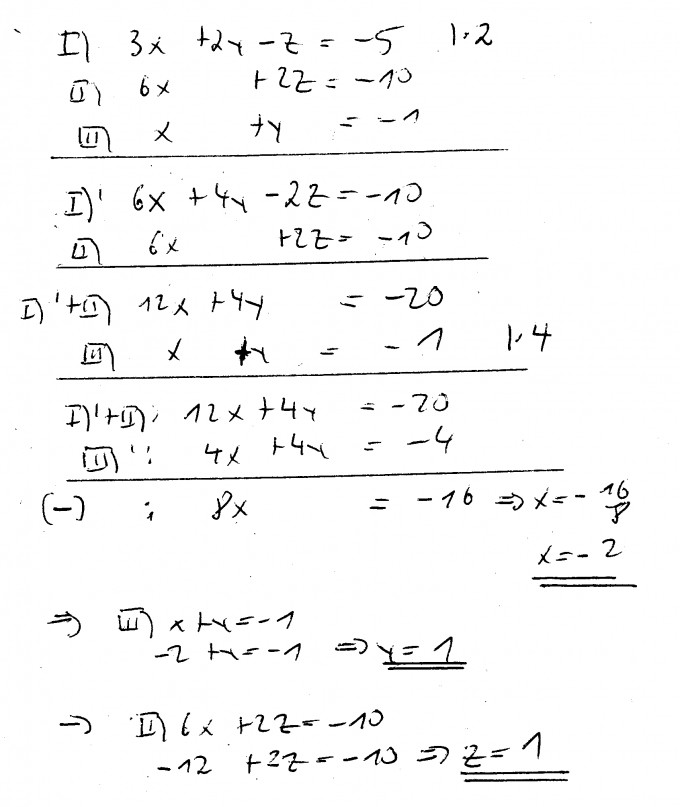 I) 3x +2y -z = -5 |·2
II) 6x +2z = -10
III) x +y = -1
I)' 6x +4y -2z = -10
II) 6x +2z = -10
I)'+II) 12x +4y = -20
III) x +y = -1 |·4
I)'+II): 12x +4y = -20
III)': 4x +4y = -4
(-) : 8x = -16 ⇒ x = -16/8
x = -2
⇒ III) x +y = -1
-2 +y = -1 ⇒ y = 1
→ II) 6x +2z = -10
-12 +2z = -10 ⇒ z = 1